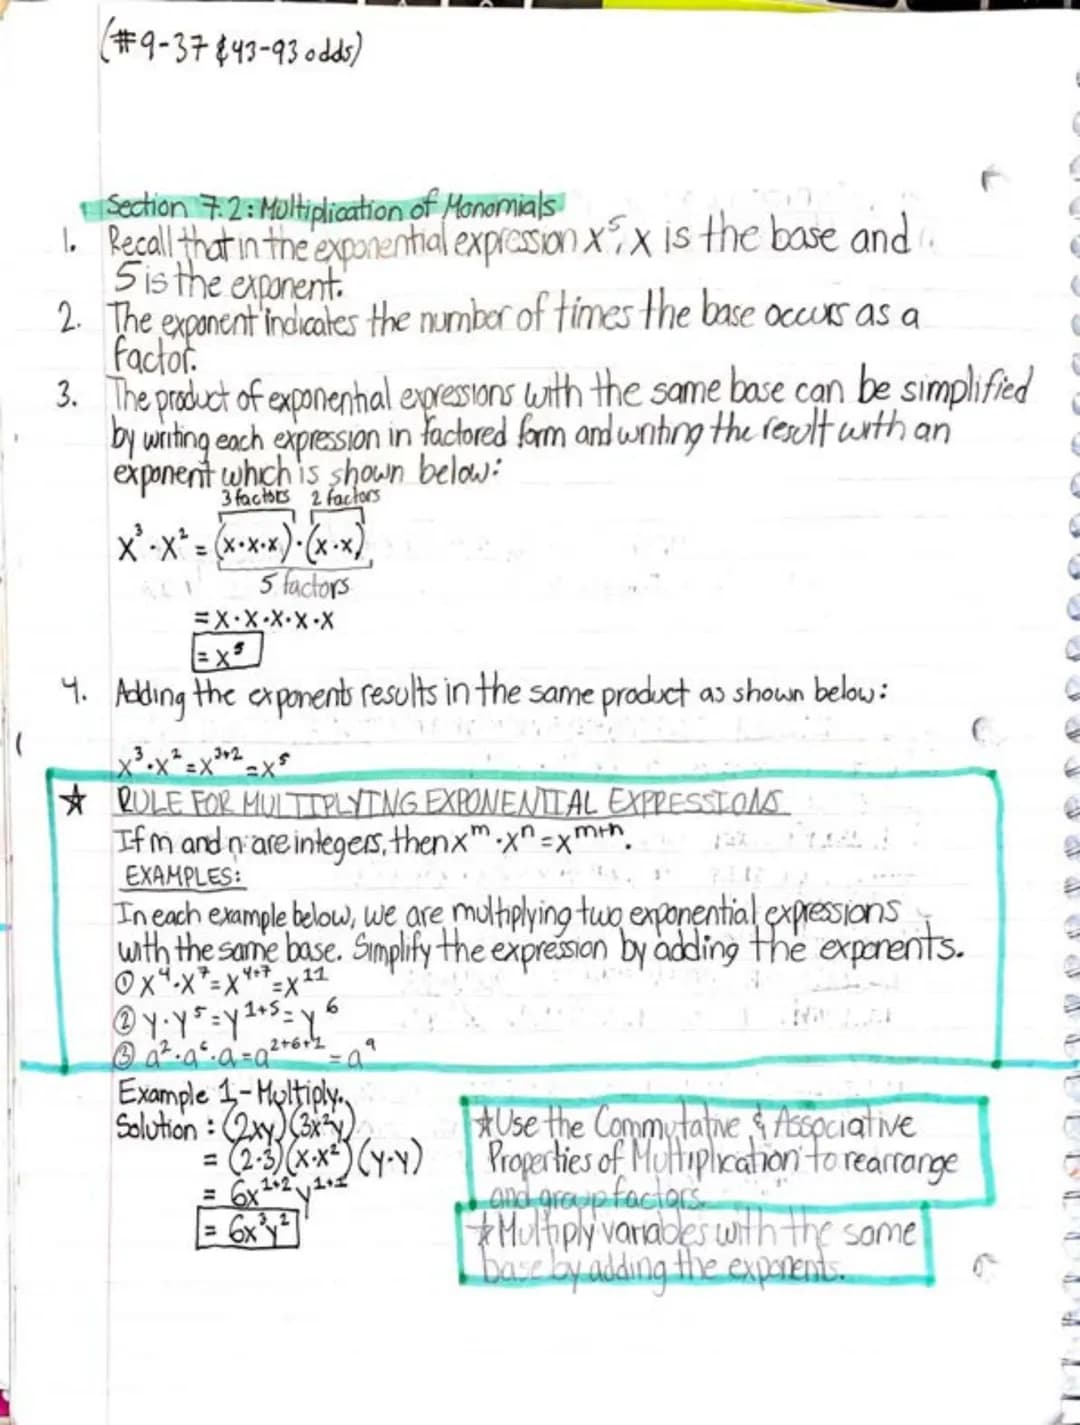 (#9-37 & 43-93 odds)
Section 7.2: Multiplication of Monomials
1. Recall that in the exponential expression x⁵, x is the base and
5 is the exponent.
2. The exponent indicates the number of times the base occurs as a
factor.
3. The product of exponential expressions with the same base can be simplified
by writing each expression in factored form and writing the result with an
exponent which is shown below:
3 factors 2 factors
x³·x² = (x·x·x)·(x·x)
5 factors
= x·x·x·x·x
= x⁵
4. Adding the exponents results in the same product as shown below:
x³·x² = x³⁺² = x⁵
☆ RULE FOR MULTIPLYING EXPONENTIAL EXPRESSIONS
If m and n are integers, then xᵐ·xⁿ = xᵐ⁺ⁿ.
EXAMPLES:
In each example below, we are multiplying two exponential expressions
with the same base. Simplify the expression by adding the exponents.
① x⁴·x⁷ = x⁴⁺⁷ = x¹¹
② y·y⁵ = y¹⁺⁵ = y⁶
③ a²·a⁶·a = a²⁺⁶⁺¹ = a⁹
Example 1 - Multiply.
Solution: (2xy)(3x²y)
= (2·3)(x·x²)(y·y)
= 6x¹⁺²y¹⁺¹
= 6x³y²
☆Use the Commutative & Associative
Properties of Multiplication to rearrange
and group factors.
☆Multiply variables with the same
base by adding the exponents.